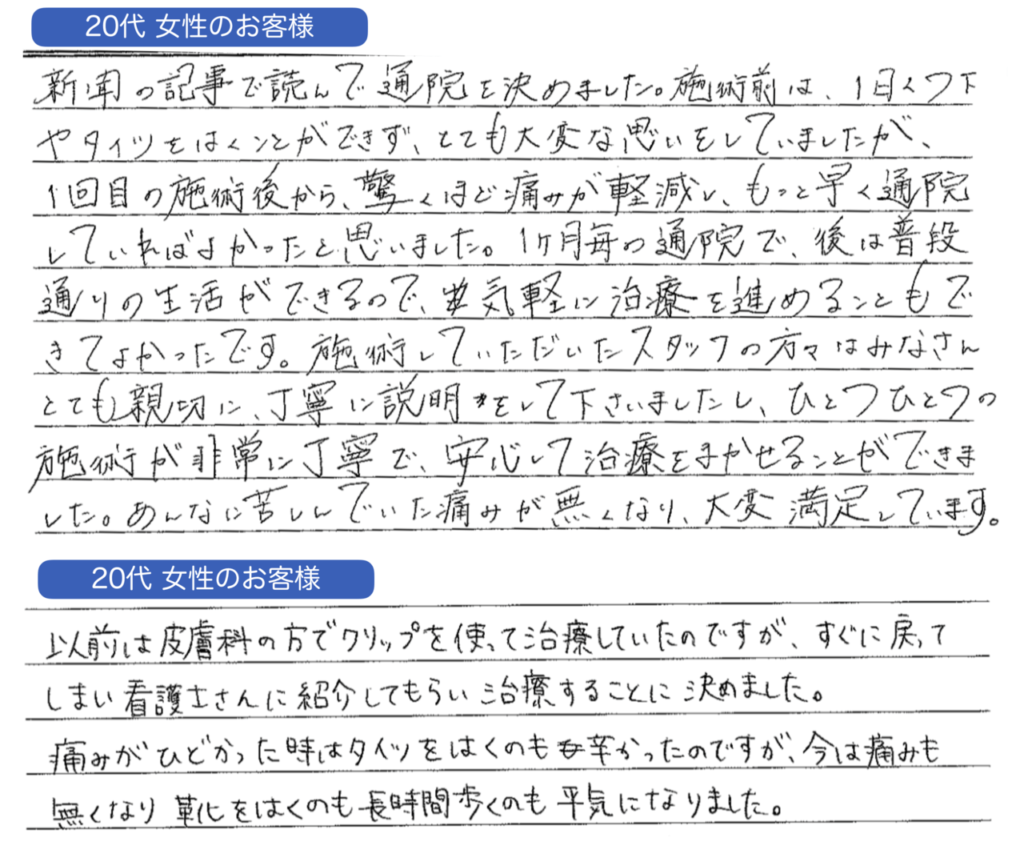 20代 女性のお客様
新聞の記事で読んで通院を決めました。施術前は、1日くつ下
やタイツをはくことができず、とても大変な思いをしていましたが、
1回目の施術後から、驚くほど痛みが軽減し、もっと早く通院
していればよかったと思いました。1ヶ月毎の通院で、後は普段
通りの生活ができるので、気軽に治療を進めることもで
きてよかったです。施術していただいたスタッフの方々はみなさん
とても親切に、丁寧に説明をして下さいましたし、ひとつひとつの
施術が非常に丁寧で、安心して治療をまかせることができま
した。あんなに苦しんでいた痛みが無くなり、大変満足しています。
20代 女性のお客様
以前は皮膚科の方でクリップを使って治療していたのですが、すぐに戻って
しまい看護士さんに紹介してもらい治療することに決めました。
痛みがひどかった時はタイツをはくのも辛かったのですが、今は痛みも
無くなり靴をはくのも長時間歩くのも平気になりました。